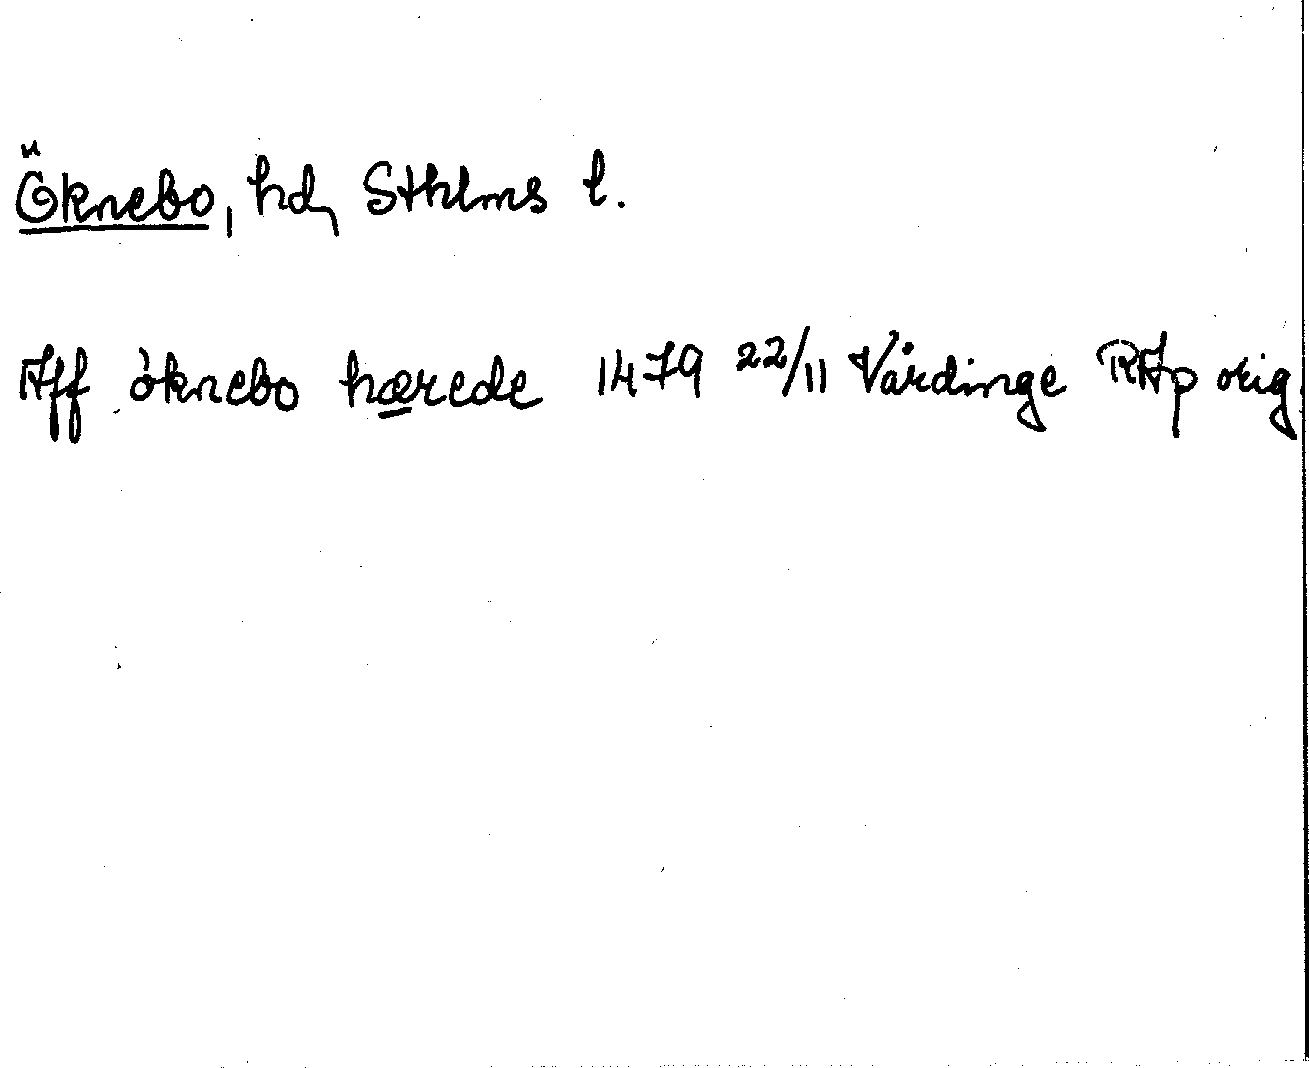 Öknebo, hd, Sthlms l.
Aff òknebo hærede 1479 22/11 Vårdinge RAp orig.